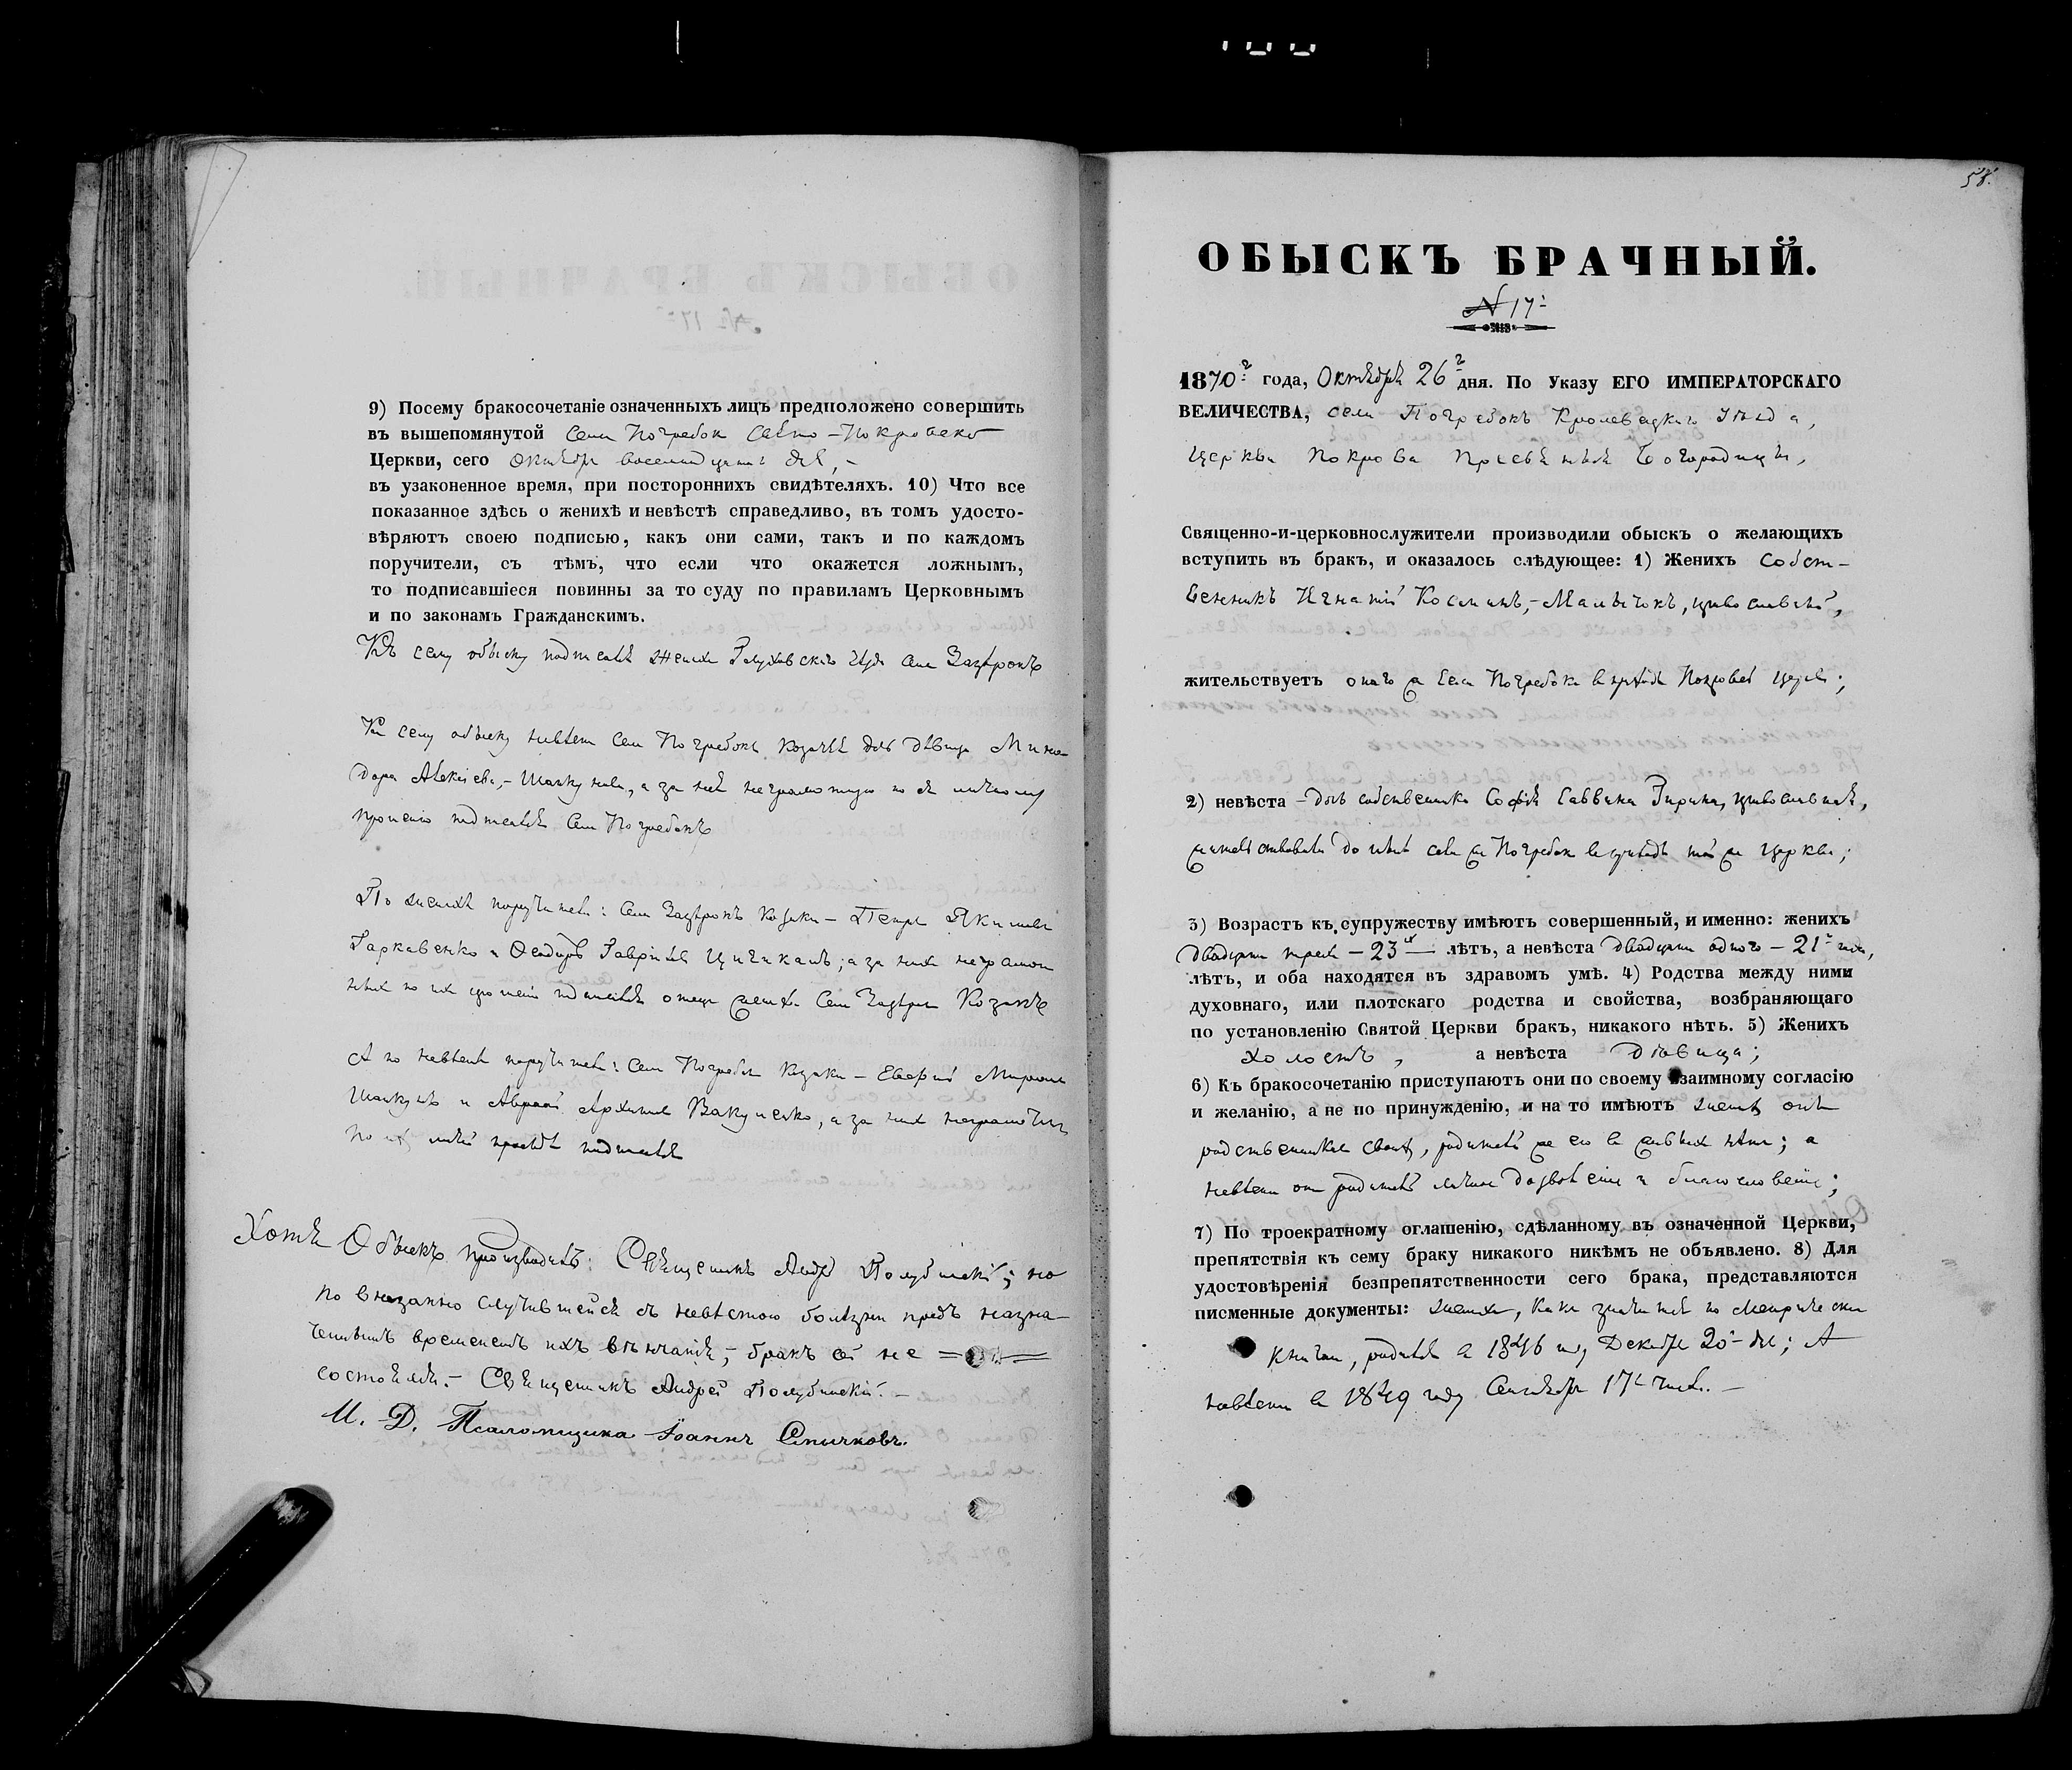 9) Посему бракосочетаніе означенныхъ лицъ предположено совершить
въ вышепомянутой села Погребок Свято-Покровско
Церкви, сего Октября дня,-
въ узаконенное время, при постороннихъ свидѣтеляхъ. 10) Что все
показанное здѣсь о женихѣ и невѣстѣ справедливо, въ томъ удосто-
вѣряютъ своею подписью, какъ они сами, такъ и по каждомъ
поручители, съ тѣмъ, что если что окажется ложнымъ,
то подписавшіеся повинны за то суду по правиламъ Церковнымъ
и по законамъ Гражданскимъ.
Къ сему обыску женихъ Глуховскаго села
Къ сему обыску невѣста села Погребокъ дочь дѣвица Мино-
дора Алексіева,- а за неё неграмотную по ея личному
прошенію села Погребокъ
По женихѣ поручители: села козаки - Петръ Якимовъ
Гаркавенко и Ѳеодоръ Гавріиловъ а за нихъ неграмот
ныхъ по ихъ прошенію отецъ села Козакъ
А по невѣстѣ поручители: села Погребокъ козаки - Миронов
и Архипов Вакуленко, а за них неграмотных
по ихъ личной просьбѣ
Хотя Обыскъ производилъ: Священникъ Андрей Полубинскій; но
по внезапно случившейся съ невѣстою болѣзни предъ назна-
ченнымъ временемъ ихъ вѣнчанія,- бракъ сей не =
состоялся.- Священникъ Андрей Полубинскій.-
И. Д. Псаломщика Іоаннъ Спычковъ.
58.
ОБЫСКЪ БРАЧНЫЙ.
N 17
1870 года, Октября 26 дня. По Указу ЕГО ИМПЕРАТОРСКАГО
ВЕЛИЧЕСТВА, села Погребокъ Кролевецкаго Уѣзда,
Церкви Покрова Пресвятыя Богородицы,
Священно-и-церковнослужители производили обыскъ о желающихъ
вступить въ бракъ, и оказалось слѣдующее: 1) Женихъ Собст-
венникъ Игнатій Косминъ,- православный,
жительствуетъ онаго же села Погребокъ в приходѣ Покровской Церкви;
2) невѣста - дочь собственника Софія Саввина православная,
жительствовала до ныне села же Погребок в приходѣ той же Церкви;
3) Возрастъ къ супружеству имѣютъ совершенный, и именно: женихъ
двадцати трехъ - 23 - лѣтъ, а невѣста двадцати одного - 21
лѣтъ, и оба находятся въ здравомъ умѣ. 4) Родства между ними
духовнаго, или плотскаго родства и свойства, возбраняющаго
по установленію Святой Церкви бракъ, никакого нѣтъ. 5) Женихъ
холостъ, а невѣста дѣвица;
6) Къ бракосочетанію приступаютъ они по своему взаимному согласію
и желанію, а не по принужденію, и на то имѣютъ женихъ отъ
родственниковъ своихъ, родителей же его в живых нѣтъ; а
невѣста от родителей личное дозволеніе и благословеніе;
7) По троекратному оглашенію, сдѣланному въ означенной Церкви,
препятствія къ сему браку никакого никѣмъ не объявлено. 8) Для
удостовѣренія безпрепятственности сего брака, представляются
писменные документы: женихъ, какъ значится по Метрическим
книгам, родился в 1846 году Декабря 20 дня; А
невѣста в 1849 году Сентября 17 числа.-